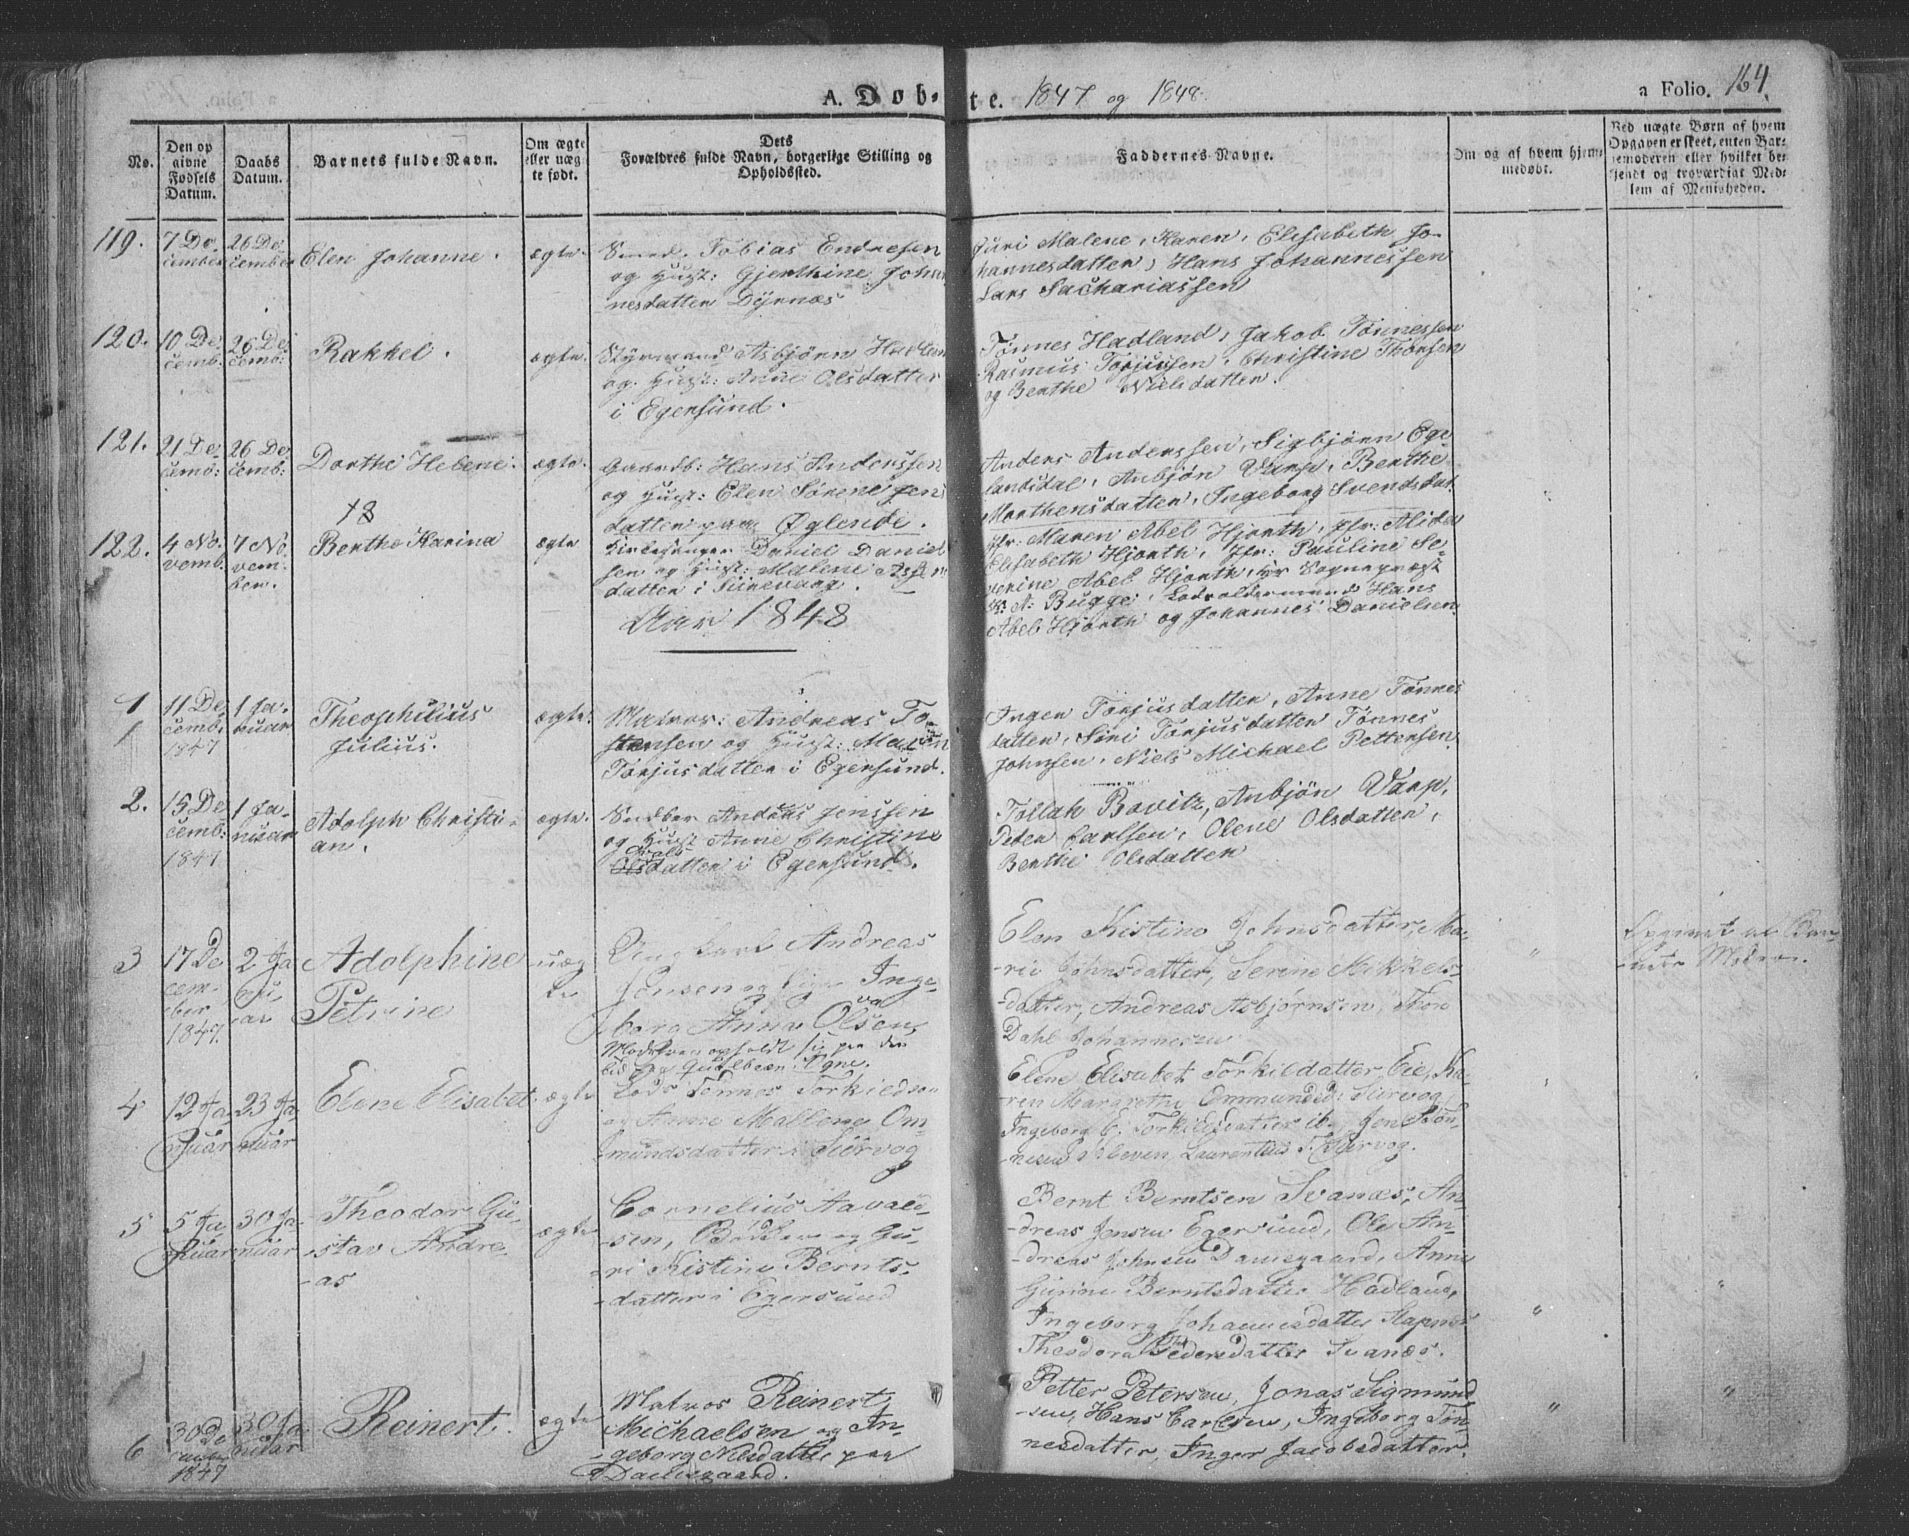 A. Døb-te. 1847 og 1848.
a Folio. 164.
No.
Den op
givne
Fødsels
Datum.
Daabs
Datum.
Barnets fulde Navn.
Om ægte
eller uæg
te født.
Dets
Forældres fulde Navn, borgerlige Stilling og
Opholdssted.
Faddernes Navne.
Om og af hvem hjem-
medøbt.
Ved uægte Børn af hvem
Opgaven er skeet, enten Bar-
nemoderen eller hvilket be-
kjendt og troværdigt Med-
lem af Menigheden.
119.
7 De-
cember
26 De-
cember
Elen Johanne.
ægte.
Smed. Tobias Endresen
og Hust: Gjerthine Johan
nesdatter Dyrnæs
Juri Malene, Karen, Elisabeth Jo-
hannesdatter, Hans Johannessen
Lars Sachariassen
120.
10 De
cemb:
26 De
cemb:
Rakkel.
ægte.
Styrmand Asbjørn Hadland
og Hust: Anne Olsdatter
i Egersund.
Tønnes Hadland, Jakob Tønnessen
Rasmus Torjussen, Christine Thorsen
og Berthe Nielsdatter.
121.
21 De-
cemb:
26 De
cemb:
Dorthe Helene.
ægte.
Gaardb: Hans Anderssen
og Hust: Elen Sørene Jens
datter paa Øglende.
Anders Anderssen, Sigbjørn Ege
landsdal, Anbjøn Varp, Berthe
Morthensdatter, Ingeborg Svendsdat
122.
4 No-
vemb.
7 No-
vem-
ber.
Berthe Karina
ægte
Kirkesanger Daniel Daniel
sen og Hust: Malene
datter i Sirevaag.
Jfr: Maren Abel Hjorth, Jfr: Alida
Elisabeth Hjorth, Jfr: Pauline Se-
verine Abel Hjorth, Hr Sognepræst
A: Bugge, Lodsoldermand Hans
Abel Hjorth og Johannes Danielsen.
Aar 1848
1
1
11 De
cemb.
1847
1 Ja-
nuar
Theophilius
Julius.
ægte.
Matros: Andreas To
stensen og Hust: Maren
Torjusdatter i Egersund.
Inger Torjusdatter, Anne Tønnes
datter, Siri Torjusdatter Tønnes
Johnsen, Niels Michael Pettersen.
2.
15 De
cemb:
1847
1 Ja-
nuar
Adolph Christi-
an.
ægte.
Andreas Jenssen
og Hust Anne Christine
Olsdatter i Egersund.
Tollak Bowitz, Anbjön Varp,
Peder Carlsen, Olene Olsdatter,
Berthe Olsdatter
3
17 De
cem-
ber
1847.
2 Ja
nu-
ar
Adolphine
Petrine
uæg
te
Ungkarl Andreas
Jonsen og Pige Inge-
borg Anna Olsen,
Elen Kistine Johnsdatter, Ma-
rie Johnsdatter, Serine Mikkels-
datter, Andreas Asbjørnsen, Thor
Dahl Johannesen
"
Opgivet af Bar-
nets Moder.
4
12 Ja
nuar
23 Ja
nuar
Elene Elisabet
ægte
Lods Tønnes Torkildsen
og Anne Mallene Om-
mundsdatter i Sirevog
Elene Elisabet Torkildatter Eie, Ka-
ren Margrethe Ommundsd: Sirevog,
Ingeborg E. Torkildsdatter ib. Jon Tøn-
nesen
5
5 Ja
nuar
30 Ja-
nuar
Theodor Gu-
stav Andre-
as
ægte
Cornelius Aavald-
sen, Bødker og Gu-
ri Kistine Bernts-
datter i Egersund
Bernt Berntsen Svanæs, An-
dreas Jensen Egersund, Ole An-
dreas Johnsen Damsgaard, Anne
Gurine Berntsdatter Hadland,
Ingeborg Johannesdatter
Theodora Pedersdatter Svanæs.
"
"
6
30 De
cember
1847
30 Ja
nuar
Reinert.
ægte
Matros Reinert
Michaelsen og In-
geborg Nilsdatter paa
Damsgaard.
Petter Petersen, Jonas Sigmund
sen, Hans Carlsen, Ingeborg Tøn-
nesdatter, Inger Jacobsdatter.
"
"